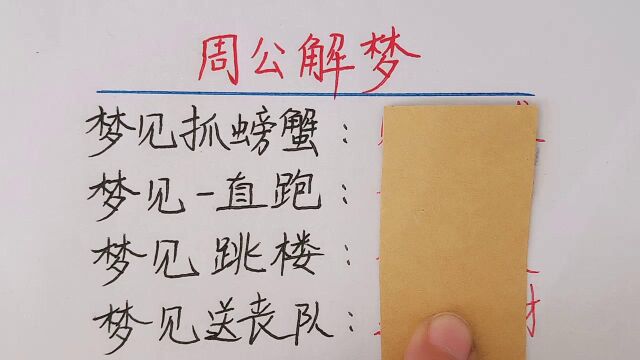 周公解梦
梦见抓螃蟹：
梦见一直跑：
梦见跳楼：
梦见送丧队：